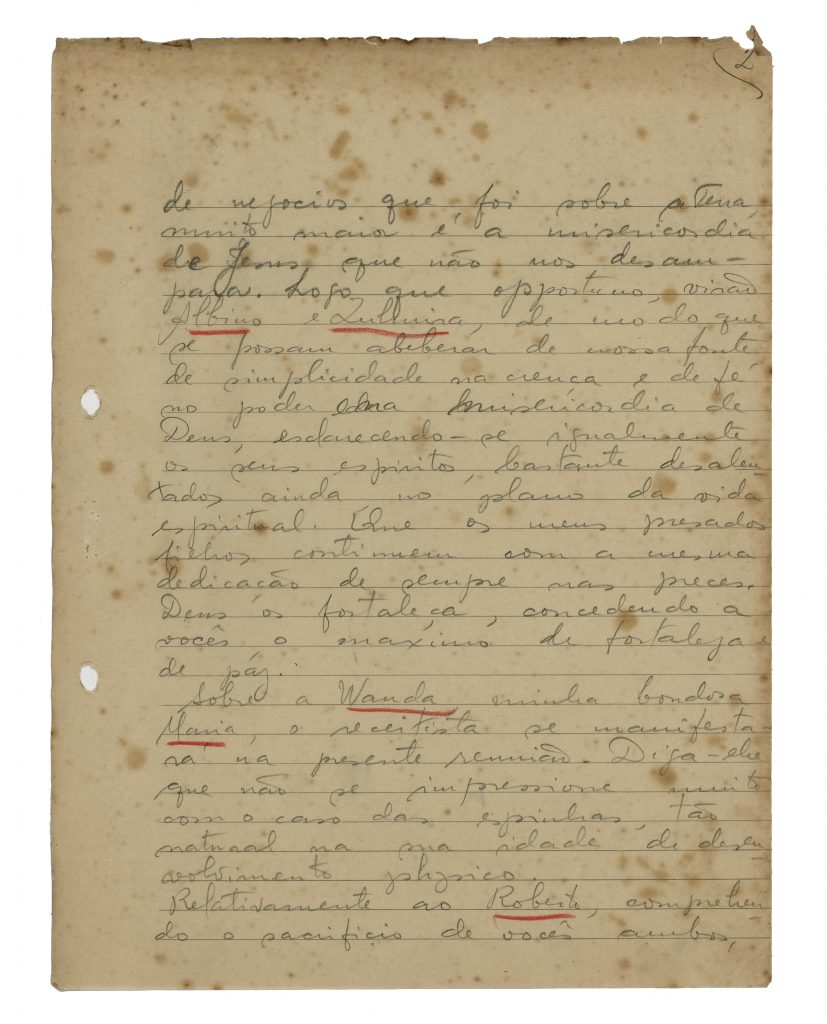 2
de negocios que foi sobre a Terra,
muito maior é a misericordia
de Jesus, que não nos desam-
para. Logo que opportuno, virão
Albino e Zulmira, de modo que
se possam abeberar de nossa fonte
de simplicidade na crença e de fé
no poder e na misericordia de
Deus, esclarecendo-se igualmente
os seus espiritos, bastante desalen-
tados ainda no plano da vida
espiritual. Que os meus presados
filhos continuem com a mesma
dedicação de sempre nas preces.
Deus os fortaleça, concedendo a
vocês o maximo de fortaleza e
de páz.
Sobre a Wanda, minha bondosa
Maria, o receitista se manifesta-
rá na presente reunião. Diga-lhe
que não se impressione muito
com o caso das espinhas, tão
natural na sua idade de desen
volvimento physico.
Relativamente ao Roberto, comprehen
do o sacrificio de vocês ambos,